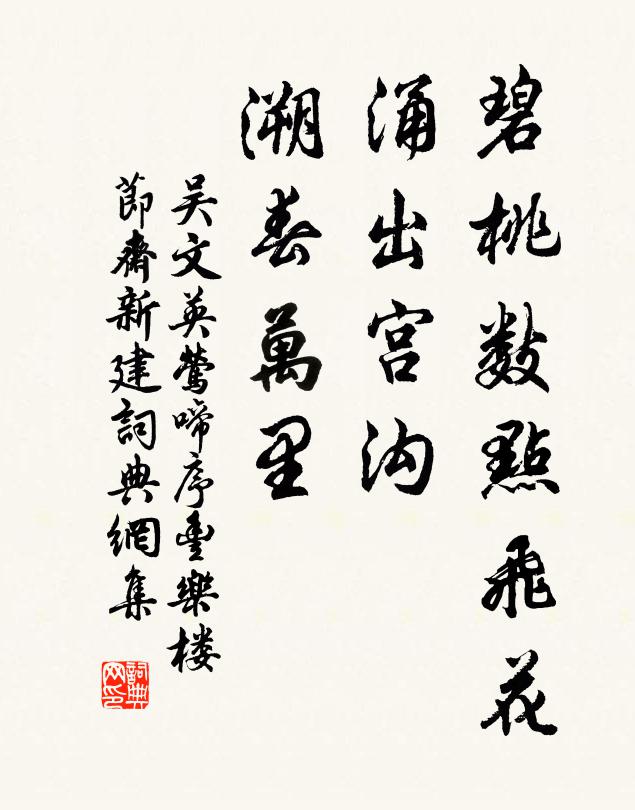 碧桃數點飛花
涌出宮沟
溯春萬里
吴文英鶯啼序豐樂楼
節齋新建詞典網集
詞典网印